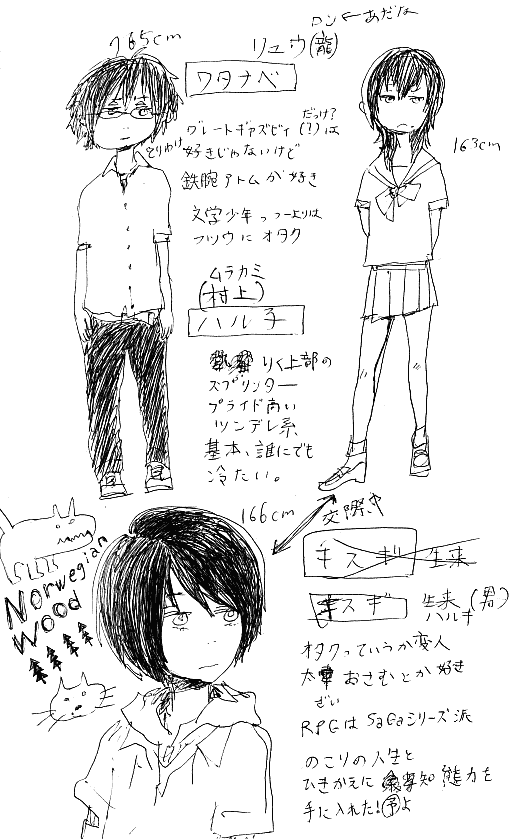 ロン←あだな
165cm
リュウ(龍)
ワタナベ
グレートギャズビィ(?)は
だっけ?
とりわけ好きじゃないけど
鉄腕アトムが好き
文学少年っつーよりは
フツウにオタク
163cm
ムラカミ
(村上)
ハル子
りく上部の
スプリンター
プライド高い
ツンデレ系
基本、誰にでも
冷たい。
166cm
交際中
キズギ 生来
キズギ 生来(男)
ハルキ
オタクっていうか変人
太宰おさむとか好き
ざい
RPGはSaGaシリーズ派
のこりの人生と
ひきかえに予知能力を
手に入れた!
よ
Norwegian
Wood